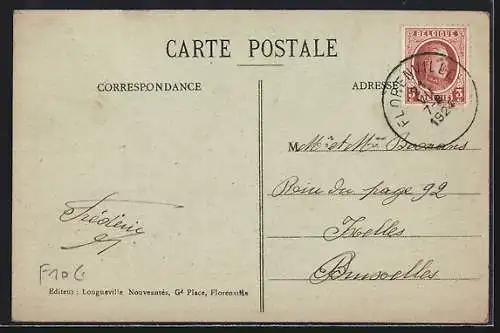 CARTE POSTALE
CORRESPONDANCE
ADRESSE
BELGIQUE
FLORENVILLE
1924
M
Mr et Mme
Rue du page 92
Ixelles
Bruxelles
Frédéric
F10 G
Editeur : Longueville Nouveautés, Gde Place, Florenville